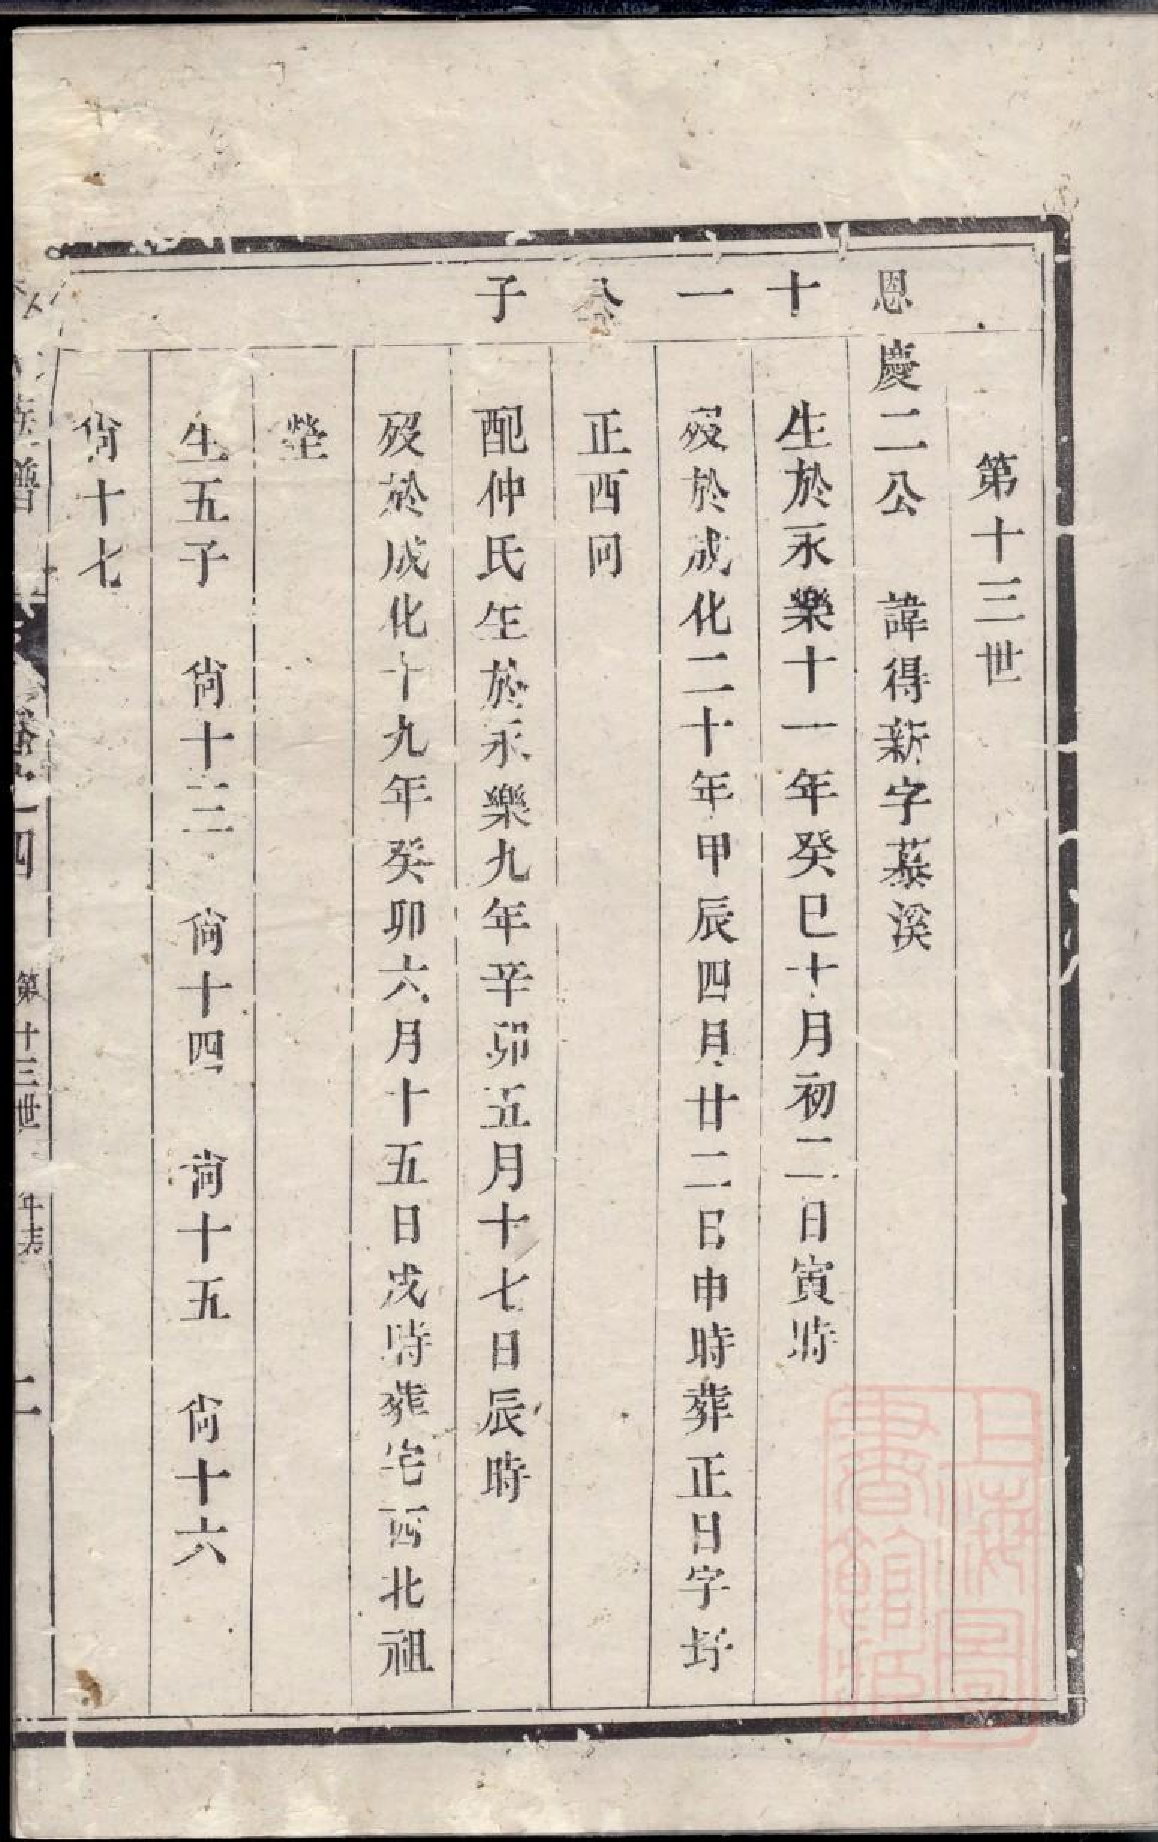 第十三世
恩 慶二公 諱得新字慕溪
十 生於永樂十一年癸巳十月初二日寅時
一 歿於成化二十年甲辰四月廿二日申時葬正日字圩
公 正西向
子 配仲氏生於永樂九年辛卯五月十七日辰時
歿於成化十九年癸卯六月十五日戌時葬宅西北祖
塋
生五子 尙十三 尙十四 尙十五 尙十六
尙十七
族譜 卷之四 第十三世 年表 二
上海圖書館藏